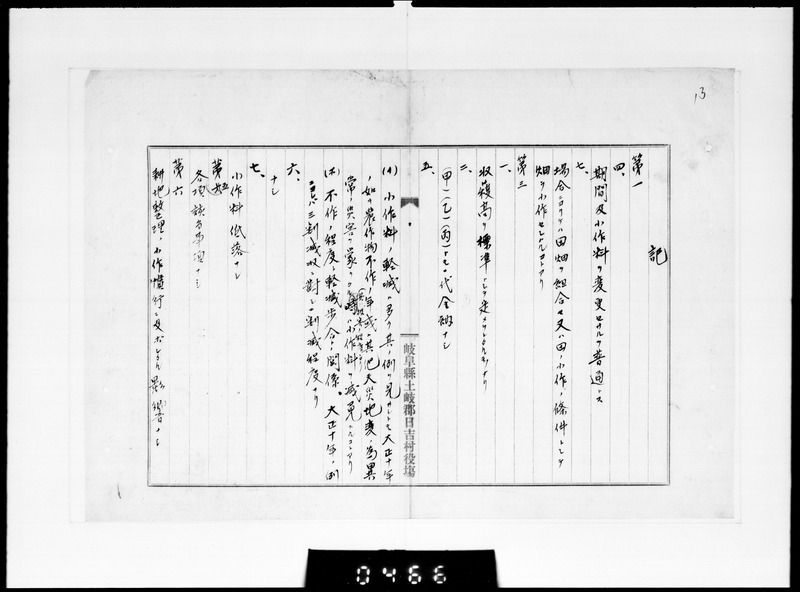 13
記
第一
四、
期間及小作料ヲ変更セサルヲ普通トス
七、
場合ニヨリテハ田畑ヲ組合セ又ハ田ノ小作ノ條件トシテ
畑ヲ小作セシムルコトアリ
第三
一、
収穫高ヲ標準トシテ定メ
二、
(甲)(乙)(丙)トモ代金納ナシ
五、
(イ) 小作料ノ軽減ハ多ク其ノ例ヲ見サルモ大正十年
ノ如ク農作物不作ノ年或ハ其他天災地変ノ為異
常ノ災害ヲ蒙リタル時ハ小作料ヲ減免スルコトアリ
(ロ) 不作ノ程度ト軽減歩合ノ関係、大正十年ノ例
ニヨレハ三割減収ニ対シ 割減程度ナリ
六、
ナシ
七、
小作料低落ナシ
第五
各項該当事項ナシ
第六
耕地整理ノ小作慣行ニ及ホシタル影響ナシ
岐阜縣土岐郡日吉村役場
0466